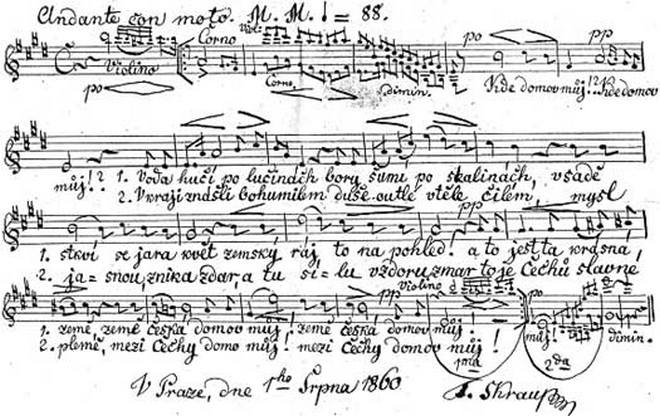 Andante con moto. M. M. ♩ = 88.
Corno Viol:
Violino po pp
po Corno, dimin. Kde domov můj!? Kde domov
můj!? 1. Voda hučí po lučinách bory šumí po skalinách, vsadě
2. V kraji znášli bohumilém duše outlé v těle čilém, mysl
pp
1. stkví se jara květ zemský ráj, to na pohled! a to jest ta krásná,
2. ja=snou, znik a zdar, a tu sí=lu vzdoru zmar to je Čechů slavné
violino
pp po
1. země, země česká domov můj! země česká, domov můj! můj! dimin.
2. plémě, mezi Čechy domov můj! mezi Čechy domov můj!
1ma 2da
V Praze, dne 1ho Srpna 1860 F. Skraup